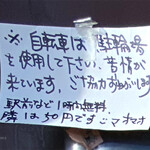 ※自転車は駐輪場
を使用して下さい。苦情が
来ています。ご協力お願いします
駅前など1時間無料
隣は50円です